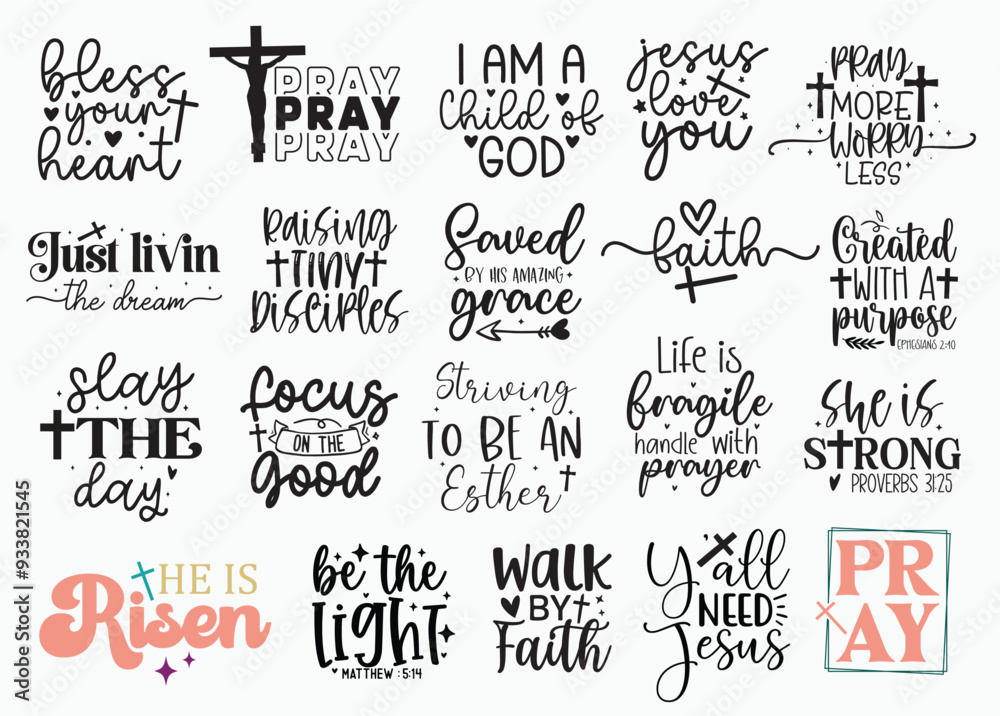 bless
your
heart
PRAY
PRAY
PRAY
I AM A
Child of
GOD
jesus
love
you
PRAY
MORE
WORRY
LESS
Just livin
the dream
Raising
TINY
Disciples
Saved
BY HIS AMAZING
grace
faith
Created
WITH A
purpose
EPHESIANS 2:10
slay
THE
day
focus
ON THE
Good
Striving
TO BE AN
Esther
Life is
fragile
handle with
prayer
she is
STRONG
PROVERBS 31:25
HE IS
Risen
be the
LIGHT
MATTHEW : 5:14
WALK
BY
Faith
Y'all
NEED
Jesus
PR
AY
Adobe Stock | #933821545